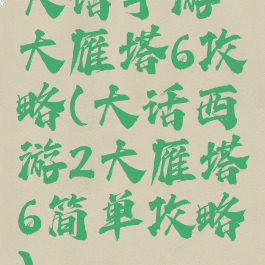 大话手游
大雁塔6攻
略(大话西
游2大雁塔
6简单攻略
)